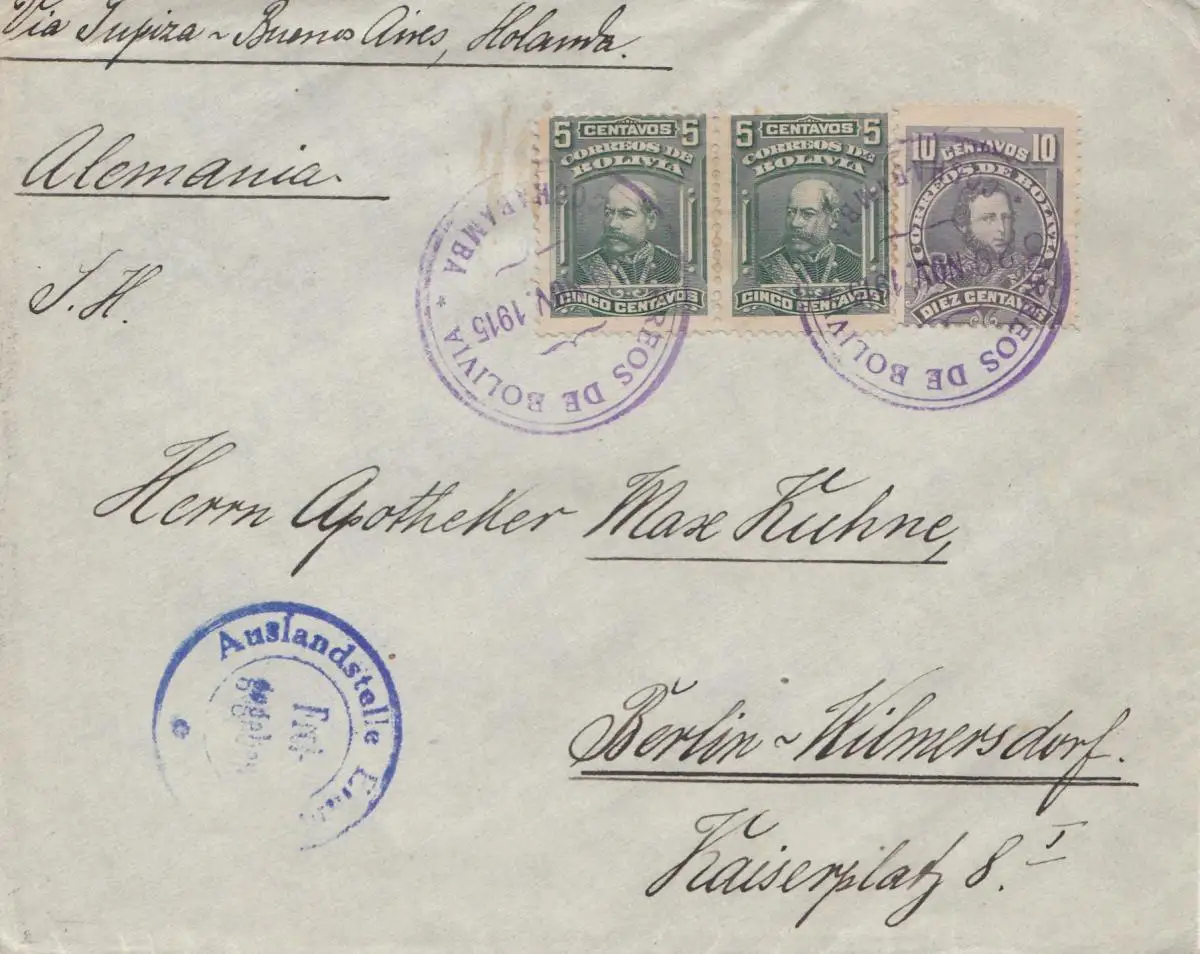 Via Tupiza ~ Buenos Aires, Holanda.
Alemania.
S. H.
5 CENTAVOS 5
CORREOS DE
BOLIVIA
CINCO CENTAVOS
5 CENTAVOS 5
CORREOS DE
BOLIVIA
CINCO CENTAVOS
10 CENTAVOS 10
CORREOS DE BOLIVIA
DIEZ CENTAVOS
CORREOS DE BOLIVIA * COCHABAMBA *
NOV. 1915
CORREOS DE BOLIVIA * COCHABAMBA
NOV. 19
Herrn Apotheker Max Kuhne,
Auslandstelle
Frei-
gegeben
Berlin ~ Wilmersdorf.
Kaiserplatz 8. I